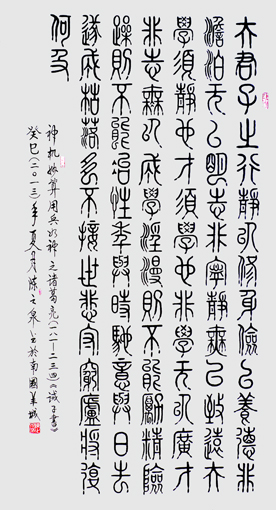 夫君子之行靜以修身儉以養德非
澹泊无以明志非寧靜無以致遠夫
學須靜也才須學也非學无以廣才
非志無以成學淫漫則不能勵精險
躁則不能冶性年與時馳意與日去
遂成枯落多不接世悲守窮廬將復
何及
神机妙算用兵如神之诸葛亮(一八一—二三四)《诫子書》
癸巳(二〇一三)年夏月陈之泉書於南國羊城